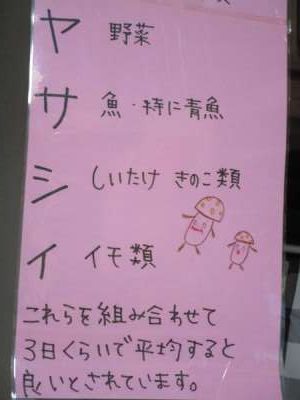 ヤ 野菜
サ 魚・特に青魚
シ しいたけ きのこ類
イ イモ類
これらを組み合わせて
3日くらいで平均すると
良いとされています。